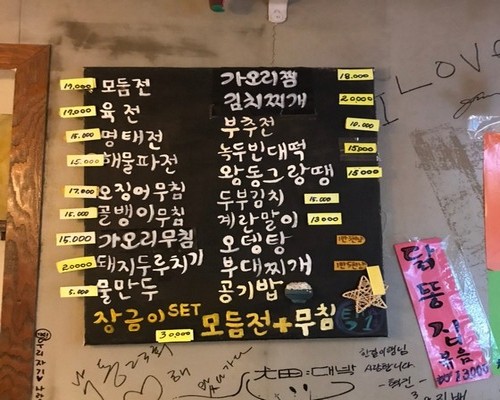 17,000 모듬전
17,000 육전
15,000 명태전
15,000 해물파전
17,000 오징어무침
15,000 골뱅이무침
15,000 가오리무침
20000 돼지두루치기
5,000 물만두
가오리찜 18,000
김치찌개 20,000
부추전 10,000
녹두빈대떡 15000
왕동그랑땡 15000
두부김치 15,000
계란말이 13000
오뎅탕
부대찌개
공기밥
장금이SET 30,000 모듬전+무침
I LOVE
닭똥집
볶음
13000
우리자기